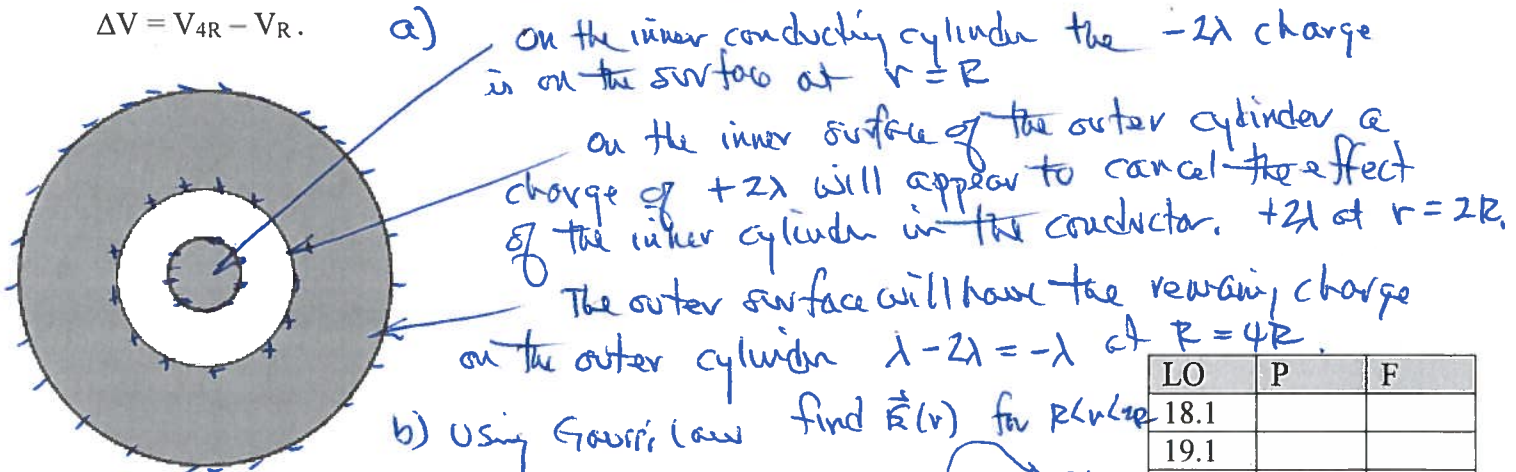 ΔV = V4R – VR.
a) on the inner conducting cylinder the -2λ charge
is on the surface at r = R
on the inner surface of the outer cylinder a
charge of +2λ will appear to cancel the effect
of the inner cylinder in the conductor. +2λ at r = 2R.
The outer surface will have the remaing charge
on the outer cylinder λ - 2λ = -λ at R = 4R.
b) Using Gauss's law find E⃗(r) for R<r<2R
LO P F
18.1
19.1